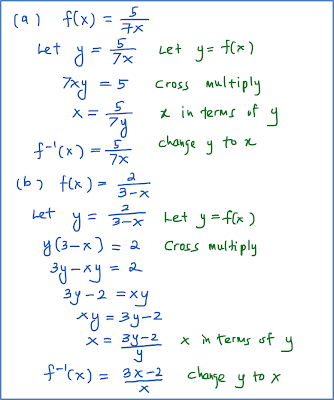 (a) f(x) = 5/7x
Let y = 5/7x Let y = f(x)
7xy = 5 cross multiply
x = 5/7y x in terms of y
f⁻¹(x) = 5/7x change y to x
(b) f(x) = 2/3-x
Let y = 2/3-x Let y = f(x)
y(3-x) = 2 Cross multiply
3y-xy = 2
3y-2 = xy
xy = 3y-2
x = 3y-2/y x in terms of y
f⁻¹(x) = 3x-2/x change y to x